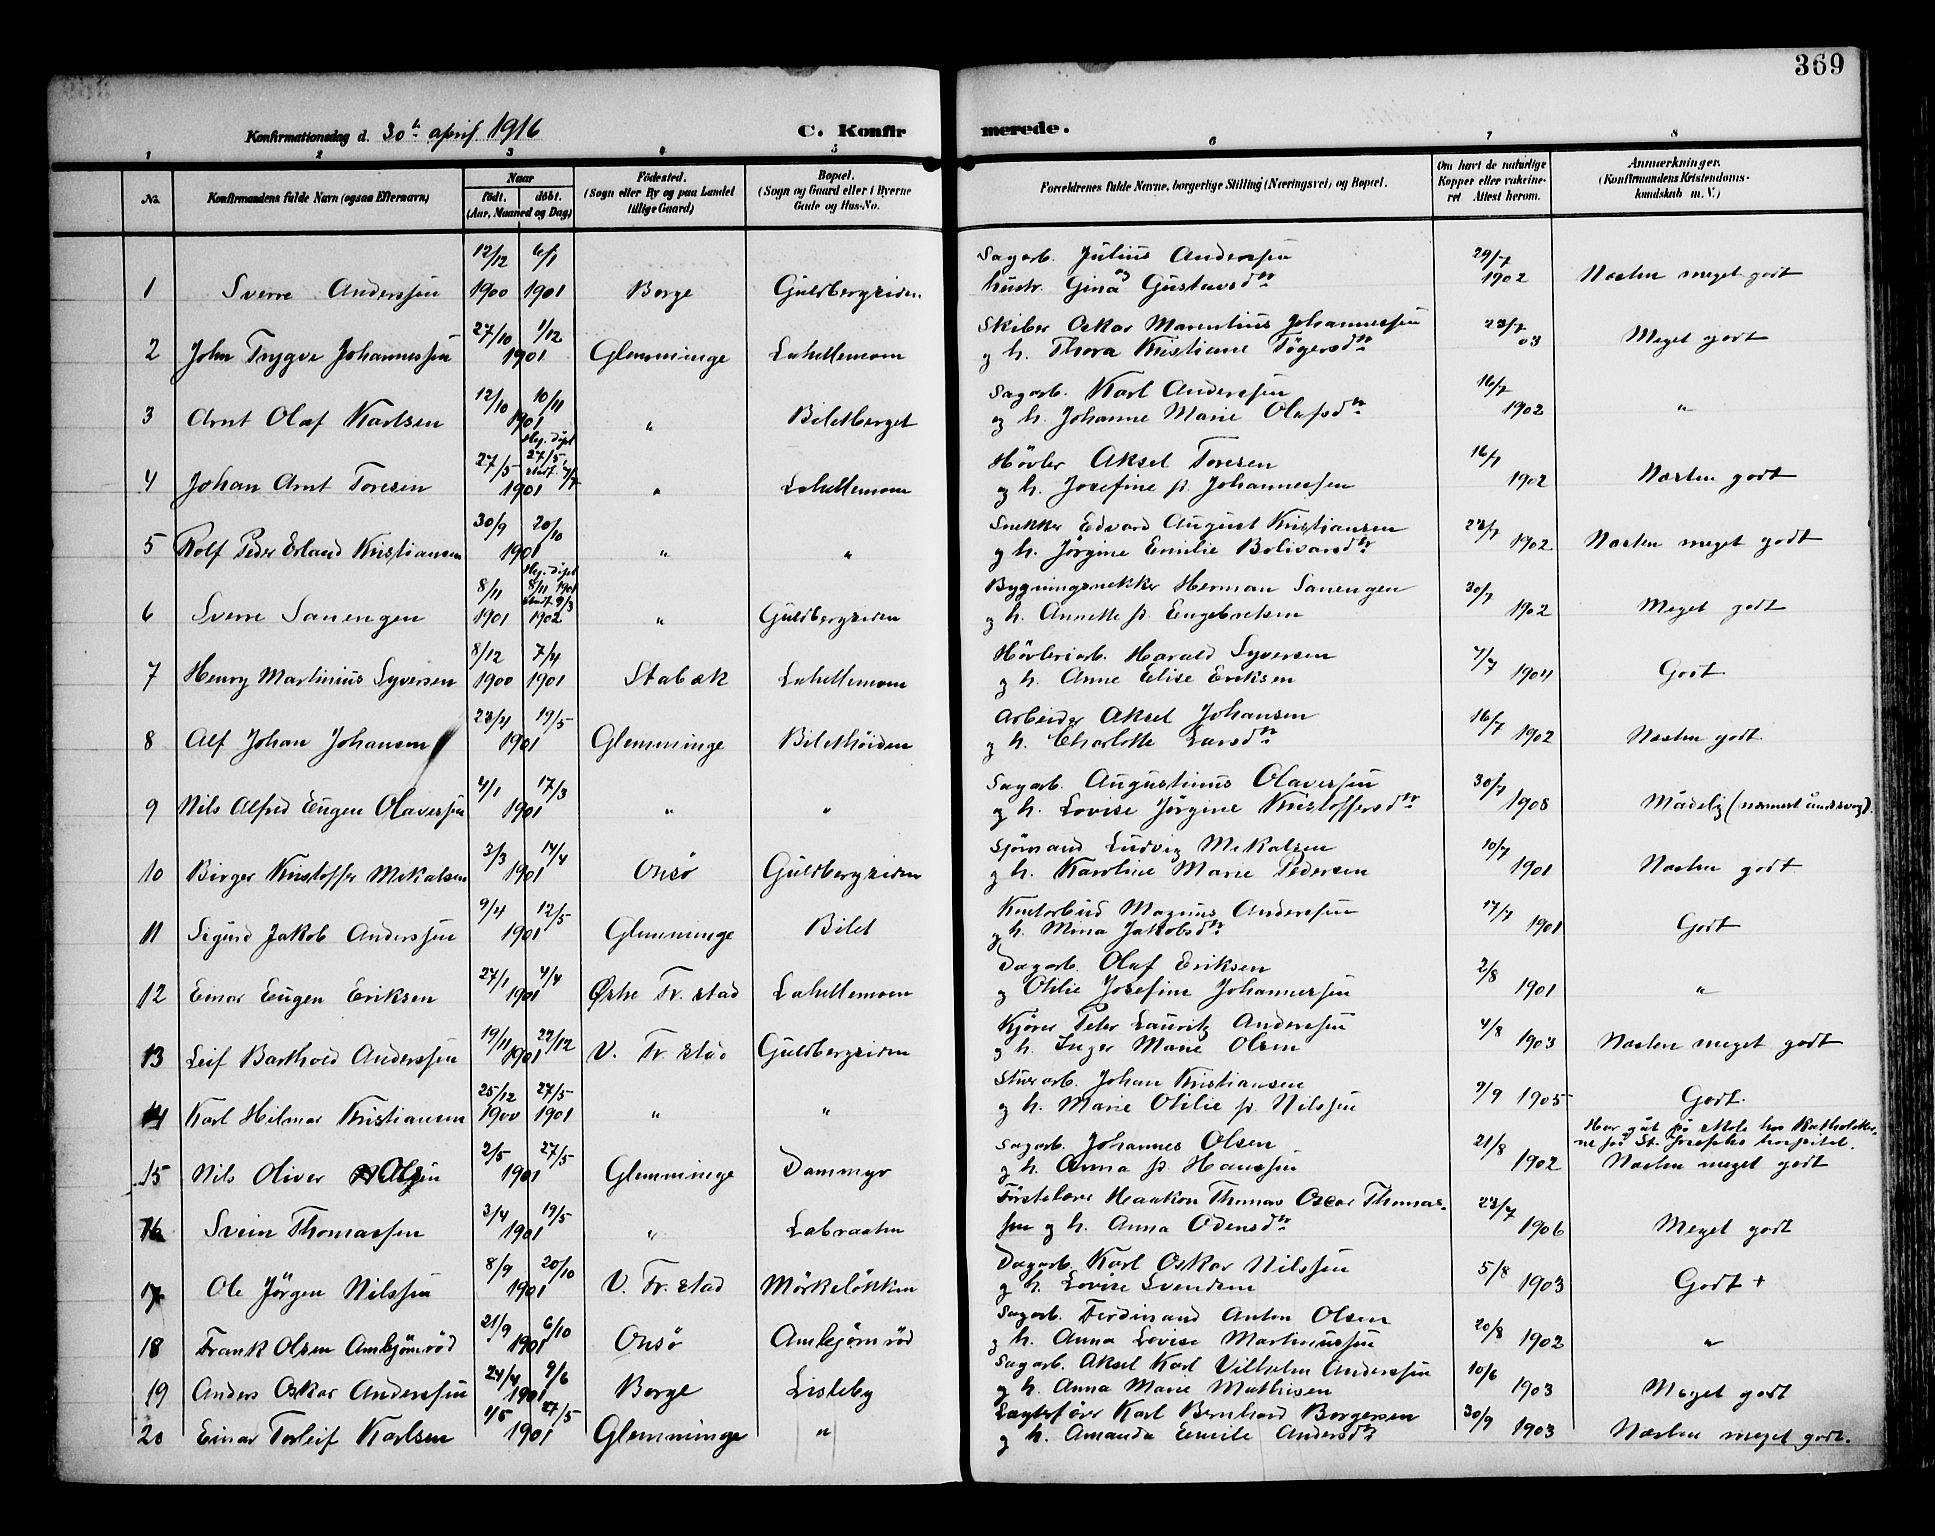 369
Konfirmationsdag d. 30te april 1916
C. Konfirmerede.
1 2 3 4 5 6 7 8
No.
Konfirmandens fulde Navn (ogsaa Efternavn)
Naar
født. døbt.
(Aar, Maaned og Dag)
Fødested.
(Sogn eller By og paa Landet
tillige Gaard)
Bopæl.
(Sogn og Gaard eller i Byerne
Gade og Hus-No.
Forældrenes fulde Navne, borgerlige Stilling (Næringsvei) og Bopæl.
Om havt de naturlige
Kopper eller vakcine-
ret Attest herom.
Anmærkninger.
(Konfirmandens Kristendoms-
kundskab m. V.)
12/12 6/1 Sagarb. Julius Anderssen 29/7
1 Sverre Anderssen 1900 1901 Borge Guldbergsiden hustr. Gina Gustavsdtr 1902 Næsten meget godt
27/10 1/12 Skiber Oskar Marentius Johannessen 23/7
2 John Trygve Johannessen 1901 Glemminge Lahellemoen og h. Thora Kristiane Tögersdtr 03 Meget godt
12/10 10/11 Sagarb. Karl Anderssen 16/7
3 Arnt Olaf Karlsen 1901 " Biletberget og h. Johanne Marie Olafsdtr 1902 "
Hj. döpt
27/5 27/5, stadf. 7/7 Hövler Aksel Toresen 16/7
4 Johan Arnt Toresen 1901 " Lahellemoen og h. Josefine f. Johannessen 1902 Næsten godt
30/9 20/10 Snekker Edvard August Kristiansen 23/7
5 Rolf Peder Erland Kristiansen 1901 " " og h. Jörgine Emilie Bolivarsdtr 1902 Næsten meget godt
Hj. döpt
8/11 8/11 1901 stadf. 9/3 Bygningsnekker Herman Sanengen 30/7
6 Sverre Sanengen 1901 1902 " Guldbergsiden og h. Annette f. Engebretsen 1902 Meget godt
8/12 7/4 Hövleriarb. Harald Syversen 7/7
7 Henry Martinius Syversen 1900 1901 Stabæk Lahellemoen og h. Anne Elise Eriksen 1904 Godt
23/4 19/5 Arbeider Aksel Johansen 16/7
8 Alf Johan Johansen 1901 Glemminge Bilethöiden og h. Charlotte Larsdtr 1902 Næsten godt.
4/1 17/3 Sagarb. Augustinus Olavessen 30/7
9 Nils Alfred Eugen Olavessen 1901 " " og h. Lovise Jörgine Kristoffersdtr 1908 Mådelig (nærmest åndssvag).
3/3 14/4 Sjömand Ludvig Mikalsen 10/7
10 Birger Kristoffer Mikalsen 1901 Onsö Guldbergsiden og h. Karoline Marie Pedersen 1901 Næsten godt
9/4 12/5 Kontorbud Magnus Anderssen 17/7
11 Sigurd Jakob Anderssen 1901 Glemminge Bilet og h. Mina Jakobsdtr 1901 Godt
27/1 4/4 Dagarb. Olaf Eriksen 2/8
12 Einar Eugen Eriksen 1901 Østre Fr.stad Lahellemoen og Otilie Josefine Johannessen 1901 "
19/11 22/12 Kjörer Peter Lauritz Anderssen 4/8
13 Leif Barthold Anderssen 1901 V. Fr.stad Guldbergsiden og h. Inger Marie Olsen 1903 Næsten meget godt
25/12 27/5 Stuearb. Johan Kristiansen
14 Karl Hilmar Kristiansen 1900 1901 " " og h. Marie Otilie f. Nilssen 9/9 1905 Godt.
2/5 27/5 Sagarb. Johannes Olsen 21/8 Har gåt på skole hos Katholiker-
ne på St. Josephs hospital.
15 Nils Oliver Olsen 1901 Glemminge Dammyr og h. Anna f. Hanssen 1902 Næsten meget godt
3/4 19/5 Förstelærer Haakon Thomas Oscar Thomas- 23/7
16 Svein Thomassen 1901 " Labraaten sen og h. Anna Odensdtr 1906 Meget godt
8/9 20/10 Dagarb. Karl Oskar Nilssen 5/8
17 Ole Jörgen Nilssen 1901 V. Fr.stad Mörkelökken og h. Lovise Svendsen 1903 Godt +
21/9 6/10 Sagarb. Ferdinand Anton Olsen 20/8
18 Frank Olsen Ambjörnröd 1901 Onsö Ambjörnröd og h. Anna Lovise Martinussen 1902 "
24/4 9/6 Sagarb. Aksel Karl Vilhelm Anderssen 10/6
19 Anders Oskar Anderssen 1901 Borge Lisleby og h. Anna Marie Mathisen 1903 Meget godt
1/5 27/5 Karl Bernhard Borgersen 30/9
20 Einar Torleif Karlsen 1901 Glemminge " og h. Amanda Emile Andersdtr 1903 Næsten meget godt.